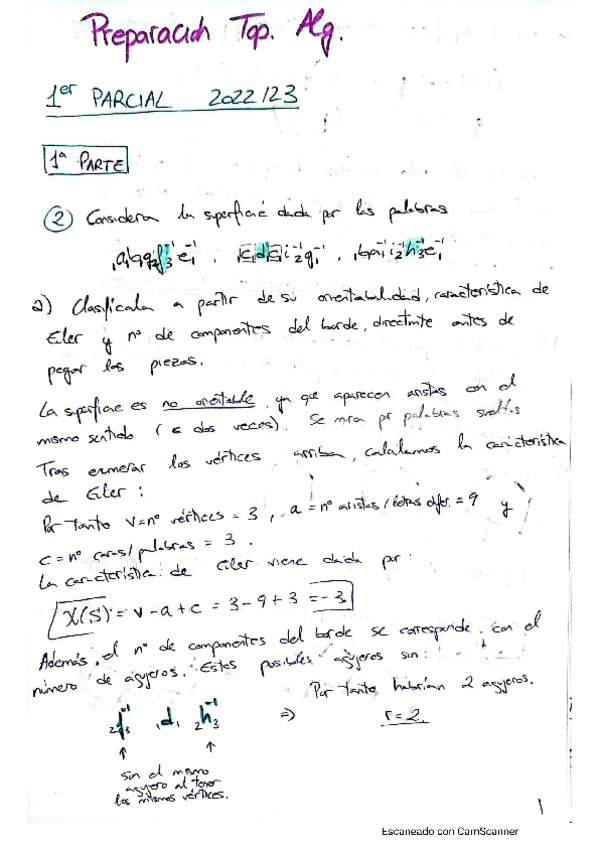 Preparación Top. Alg.
1er PARCIAL 2022/23
1ª PARTE
② Considerar la superficie dada por las palabras
a) Clasificala a partir de su orientabilidad, característica de
Eler y nº de componentes del borde, directmte antes de
pegar las piezas.
La superficie es no orientable, ya que aparecen aristas con el
mismo sentido (c dos veces). Se mira por palabras sueltas
Tras enumerar los vértices arriba, calculamos la característica
de Eler:
Por tanto V=nº vértices = 3, a = nº aristas/letras difer. = 9 y
c = nº caras/palabras = 3.
La característica de Eler viene dada por:
χ(S) = v - a + c = 3 - 9 + 3 = -3
Además, el nº de componentes del borde se corresponde con el
número de agujeros. Estos posibles agujeros son:
Por tanto, habrían 2 agujeros.
₂f₃⁻¹ ₁d₁ ₂h₃⁻¹ ⇒ r = 2.
↑ ↑
son el mismo
agujero al tener
los mismos vértices.
1
Escaneado con CamScanner